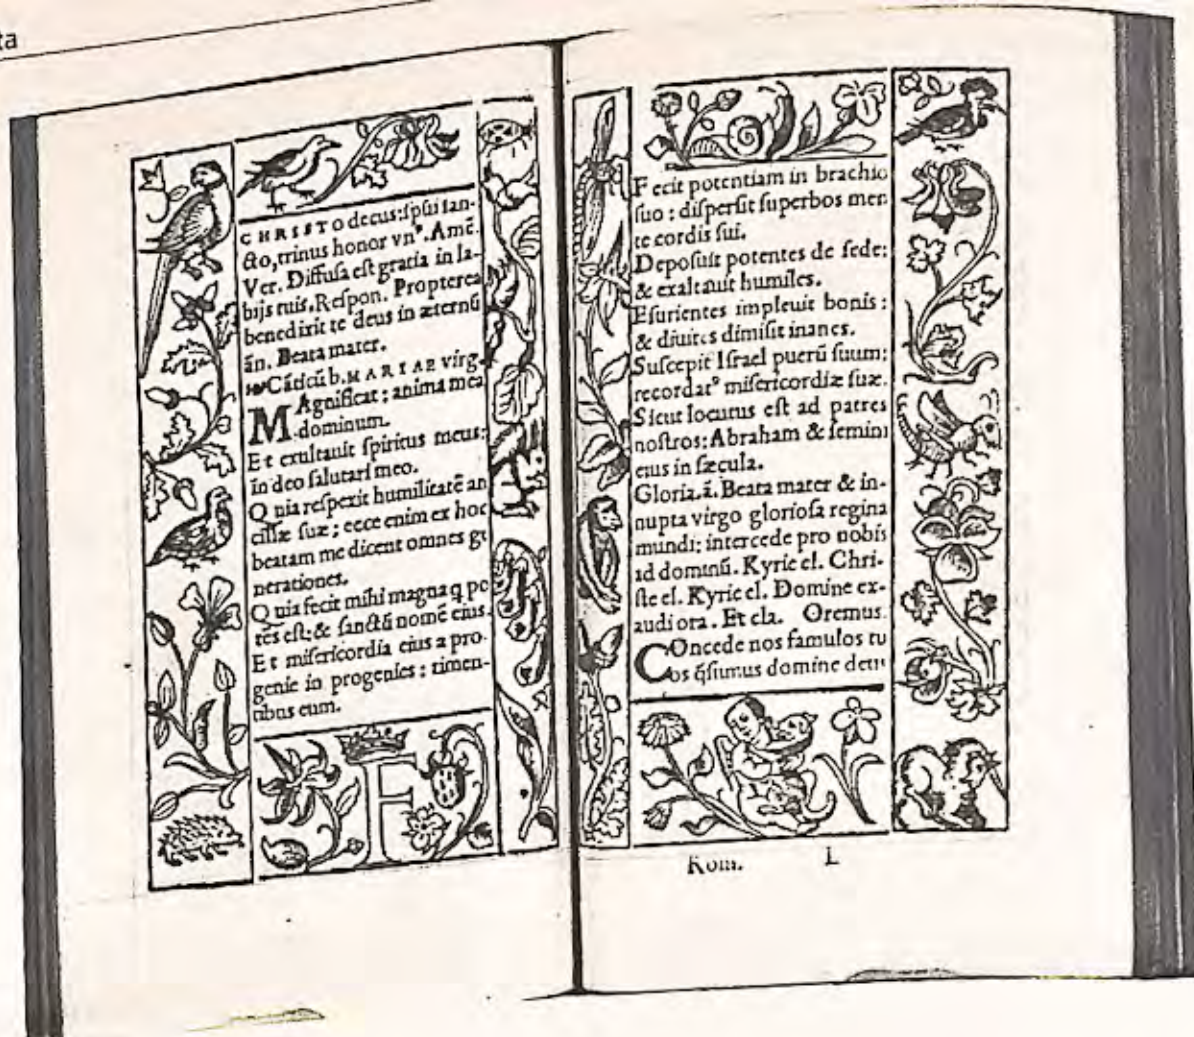 ta
CHRISTO decus: ſpūi ſan-
cto, trinus honor vnꝰ. Amē.
Ver. Diffuſa eſt gratia in la-
bijs tuis. Reſpon. Propterea
benedixit te deus in æternū
ān. Beata mater.
Cāticū b. MARIAE virg.
MAgnificat: anima mea
dominum.
Et exultauit ſpiritus meus:
in deo ſalutari meo.
Quia reſpexit humilitatē an
cillæ ſuæ; ecce enim ex hoc
beatam me dicent omnes ge
nerationes.
Quia fecit mihi magna q po
tēs eſt: & ſanctū nomē eius.
Et miſericordia eius a pro-
genie in progenies: timen-
tibus eum.
F
Fecit potentiam in brachio
ſuo: diſperſit ſuperbos men
te cordis ſui.
Depoſuit potentes de ſede:
& exaltauit humiles.
Eſurientes impleuit bonis:
& diuites dimiſit inanes.
Suſcepit Iſrael puerū ſuum:
recordatꝰ miſericordiæ ſuæ.
Sicut locutus eſt ad patres
noſtros: Abraham & ſemini
eius in ſæcula.
Gloria. ā. Beata mater & in-
nupta virgo glorioſa regina
mundi: intercede pro nobis
ad dominū. Kyrie el. Chri-
ſte el. Kyrie el. Domine ex-
audi ora. Et cla. Oremus.
COncede nos famulos tu
os q̄ſumus domine deus
Rom. L